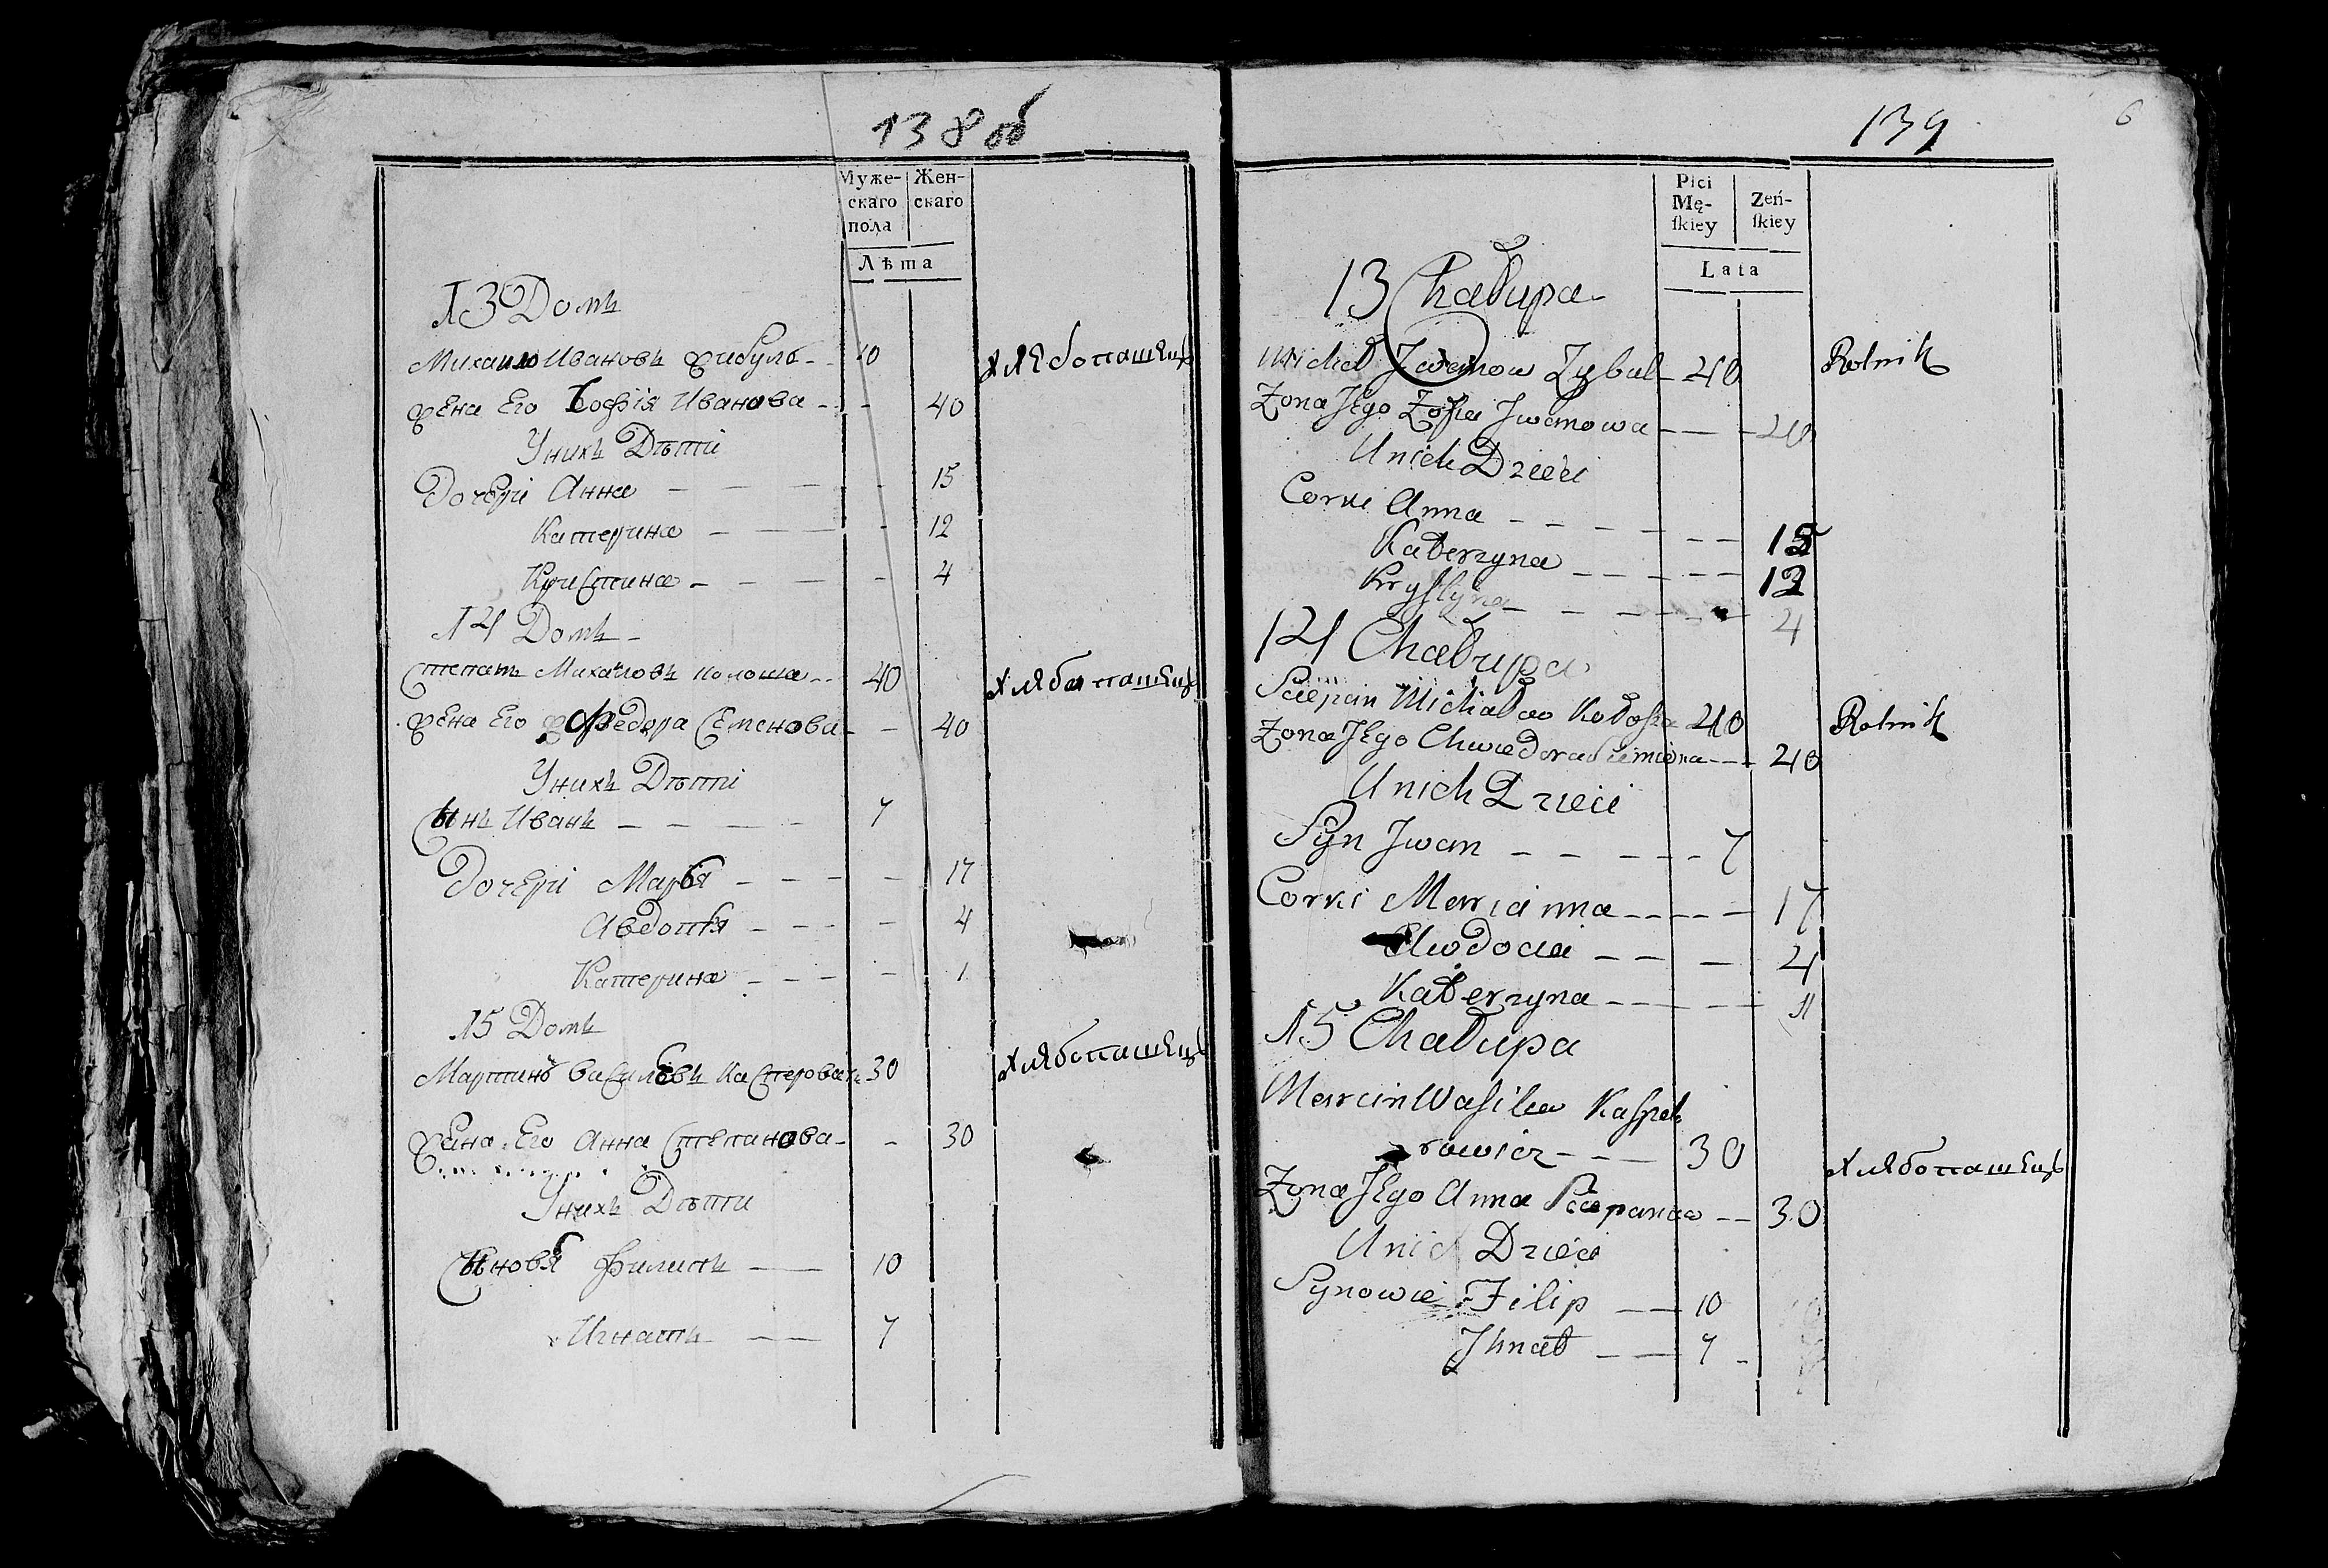 138 об
Муже-
скаго
пола
Жен-
скаго
Лѣта
13 Домъ
Михаило Ивановъ Жибуль 40 хлебопашецъ
жена Его Зофія Иванова 40
Унихъ Дѣти
Дочері Анна 15
Катерина 12
Кристина 4
14 Домъ
Степанъ Михаловъ Колоша 40 хлебопашецъ
жена Его Федора Семенова 40
Унихъ Дѣти
Сынъ Иванъ 7
Дочері Марья 17
Авдотья 4
Катерина 1
15 Домъ
Мартинъ Василевъ Касперовичъ 30 хлебопашецъ
жена Его Анна Степанова 30
Унихъ Дѣти
Сыновя Филипъ 10
Игнатъ 7
139
6
Płci
Mę-
ſkiey
Zeń-
ſkiey
Lata
13 Chałupa
Michał Jwanow Zybul 40 Rolnik
Zona JEgo Zofia Jwanowa 40
Unich Dzieci
Corki Anna 15
Katerzyna 12
Kryſtyna 4
14 Chałupa
Sciepan Michałow Kołosza 40 Rolnik
Zona JEgo Chwiedora Siemiona 40
Unich Dzieci
Syn Jwan 7
Corki Marcianna 17
Awdocia 4
Katerzyna 1
15 Chałupa
Marcin Wasilew Kaspe
rowicz 30 хлебопашецъ
Zona JEgo Anna Sciepanaw 30
Unich Dzieci
Synowie Filip 10
Jhnat 7